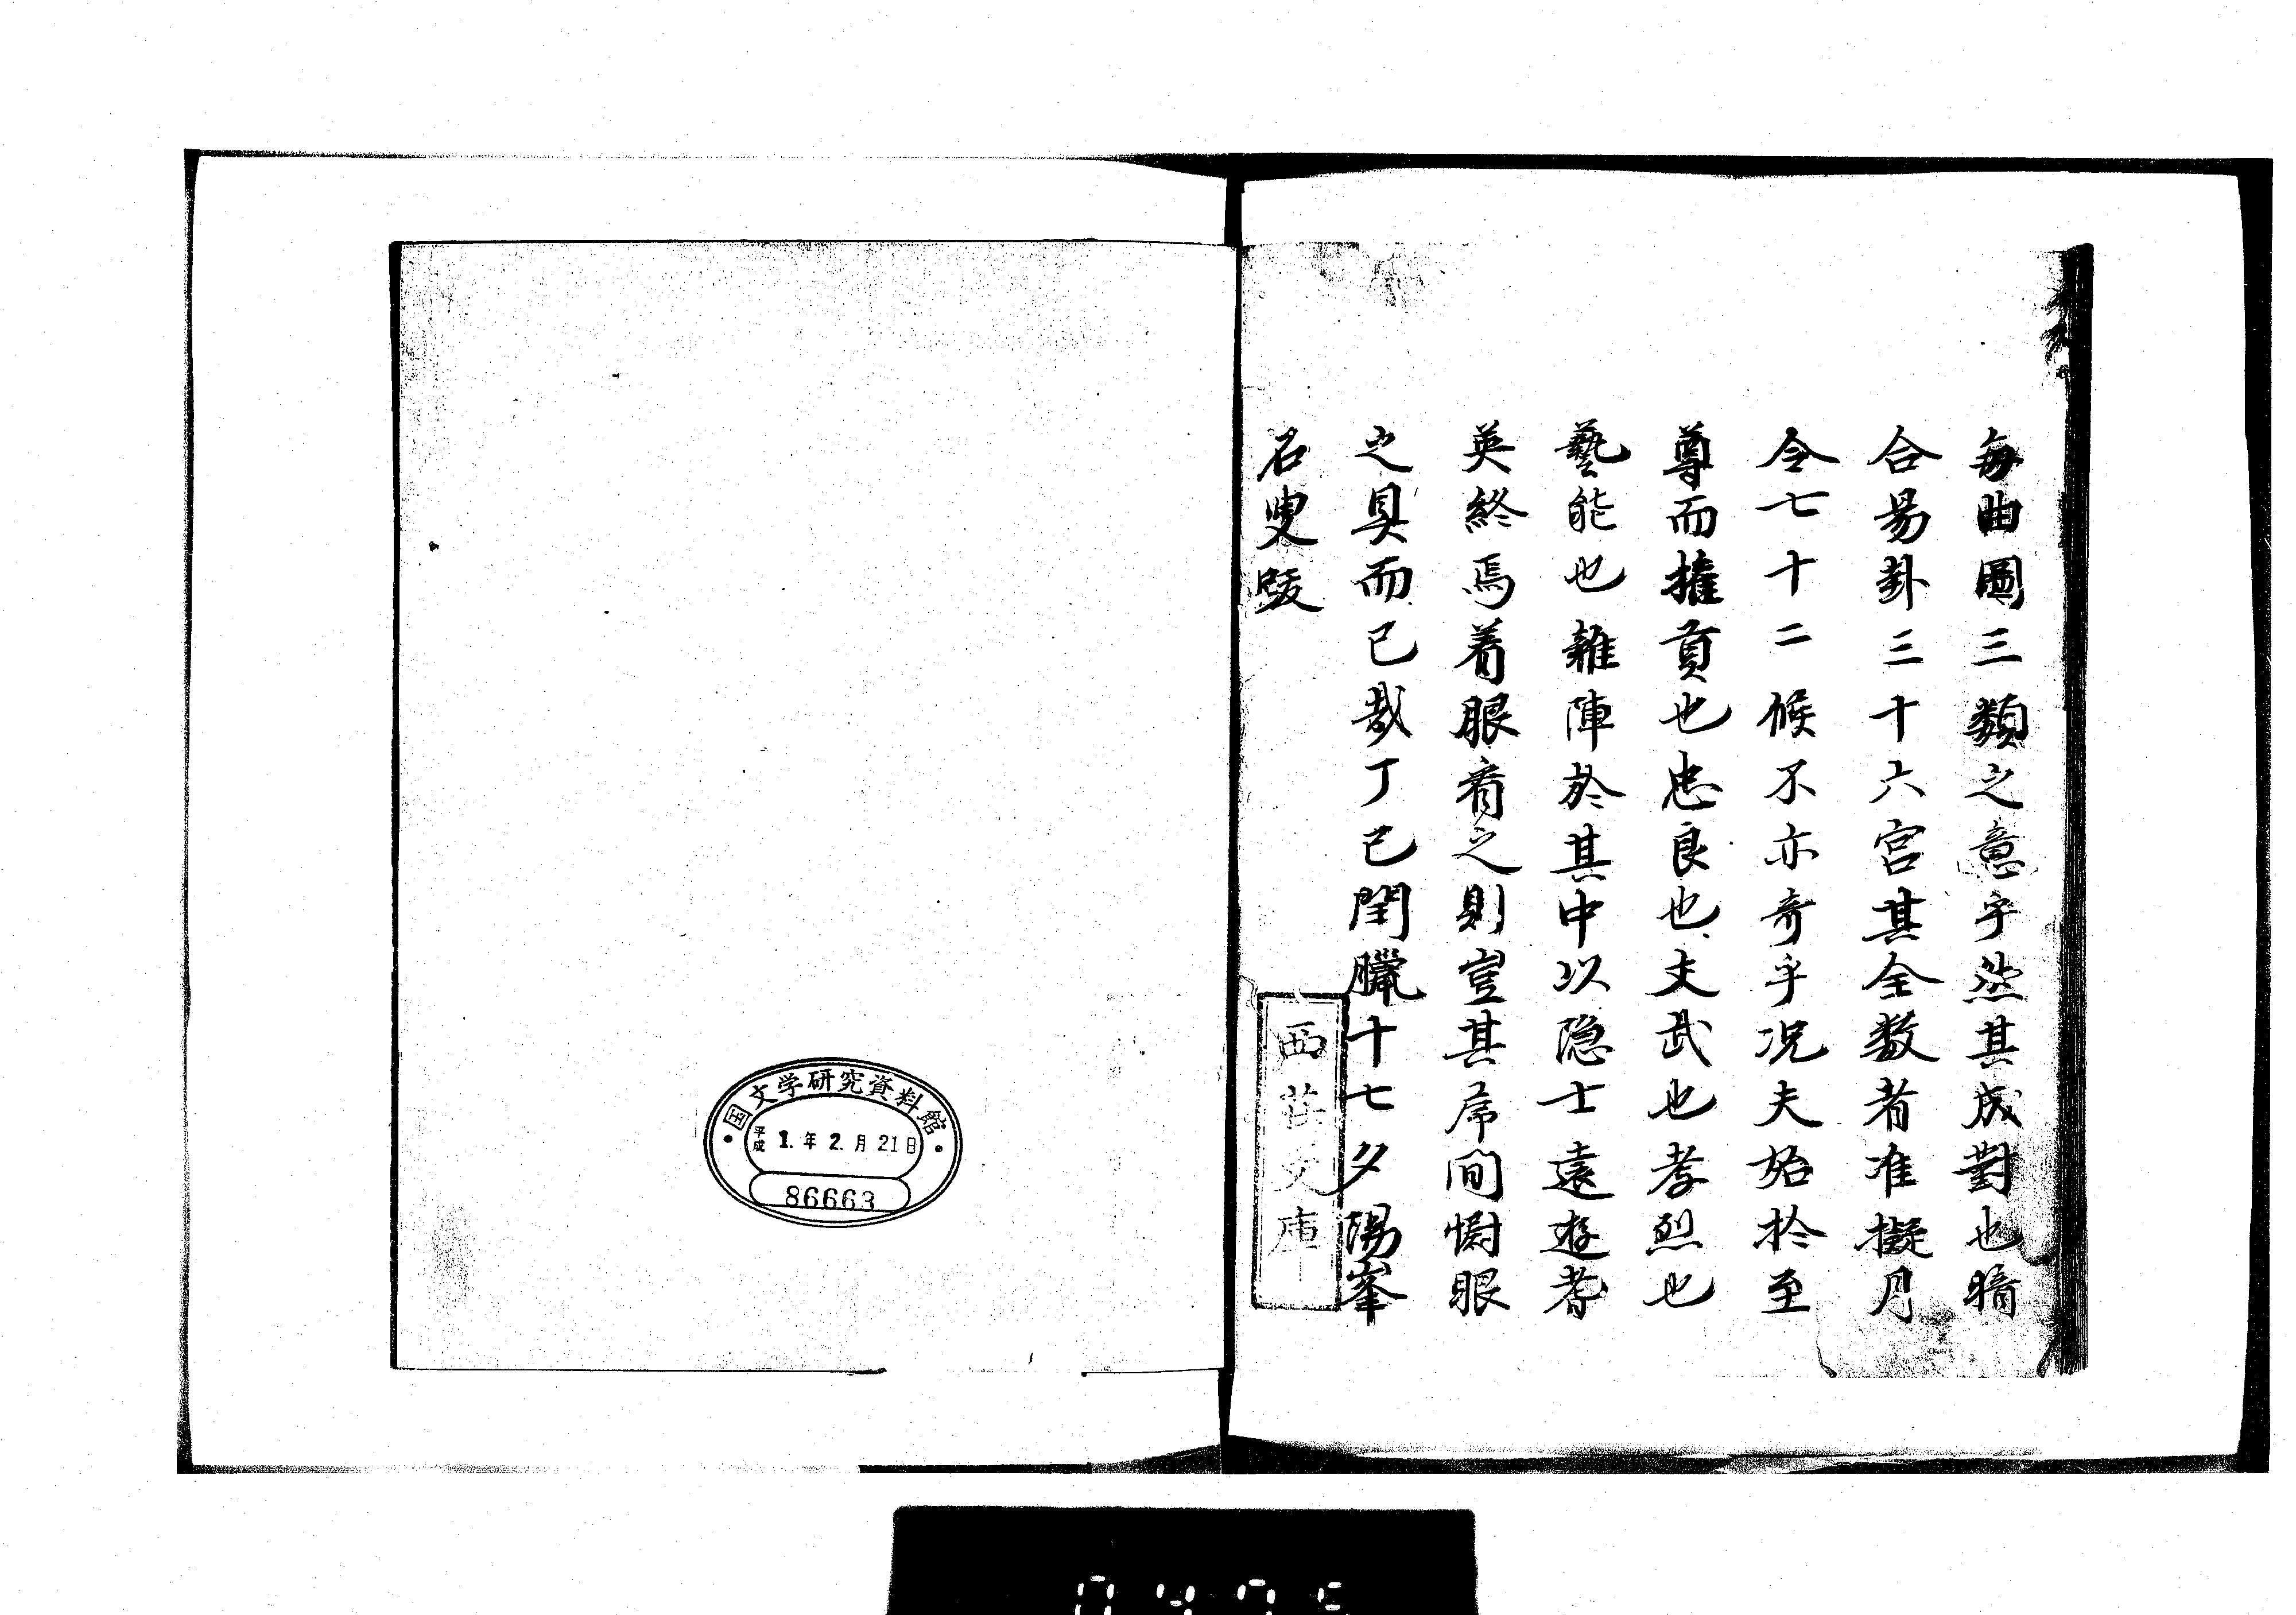 每曲圖三類之意乎然其成對也暗
合易卦三十六宮其全数者准擬月
令七十二候不亦奇乎况夫始於至
尊而摧賁也忠良也文武也孝烈也
藝能也雜陣於其中以隐士遠遊者
英終焉着眼看之則豈其席間慰眼
之具而已哉丁巳閏臘十七夕陽峯
石叟跋
西荘文庫
国文学研究資料館
平成 1. 年 2. 月 21 日
86663